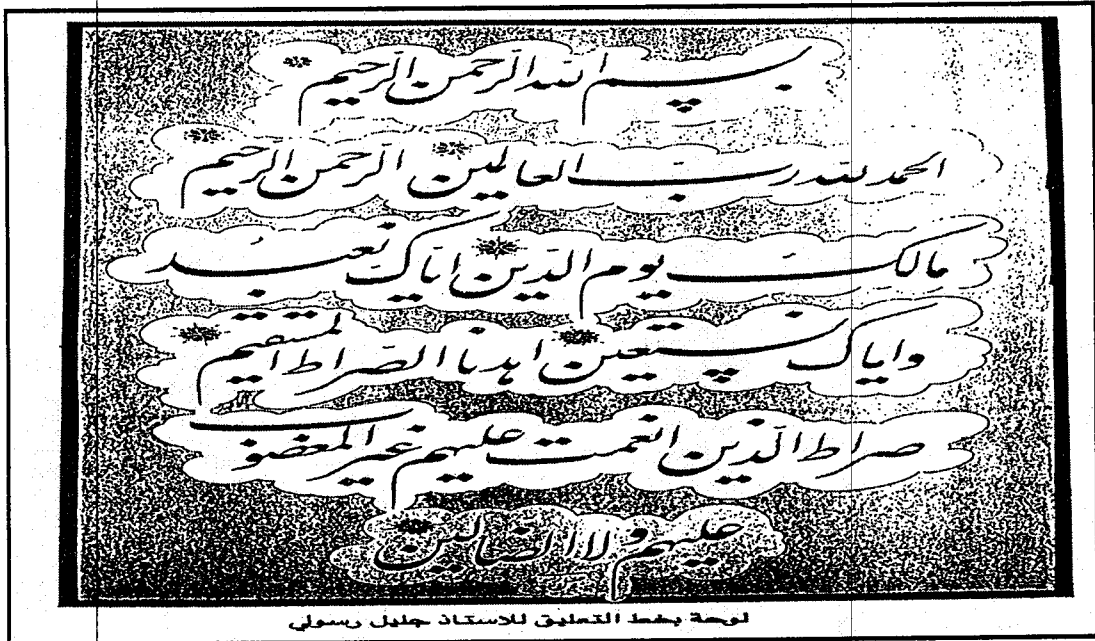 بسم الله الرحمن الرحيم
الحمد لله رب العالمين الرحمن الرحيم
مالك يوم الدين اياك نعبد
واياك نستعين اهدنا الصراط المستقيم
صراط الذين انعمت عليهم غير المغضوب
عليهم ولا الضالين
لوحة بخط التعليق للاستاذ جليل رسولي